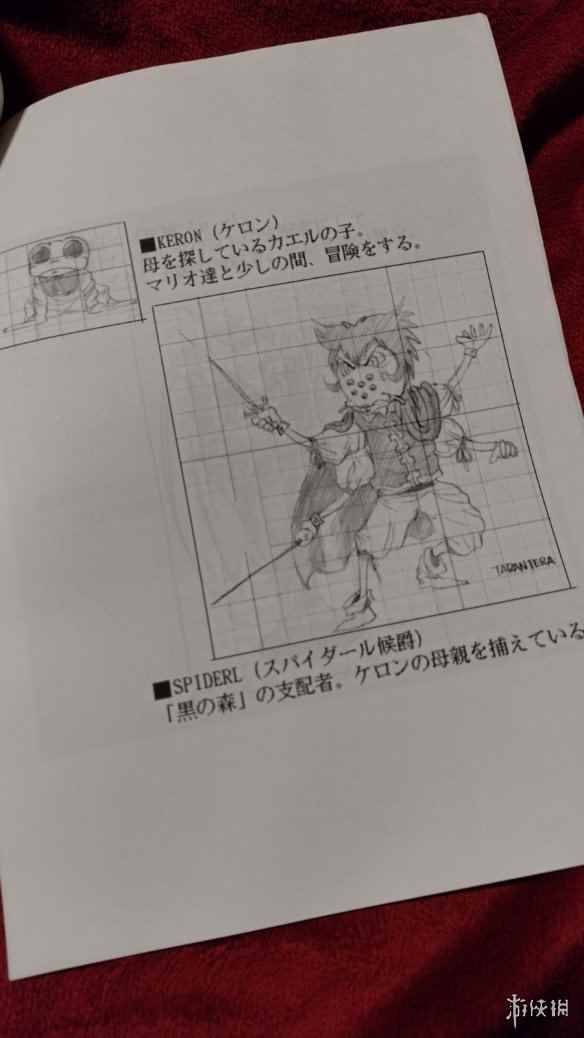 ■KERON (ケロン)
母を探しているカエルの子。
マリオ達と少しの間、冒険をする。
TARANTERA
■SPIDERL (スパイダール候爵)
「黒の森」の支配者。ケロンの母親を捕えている
游侠网